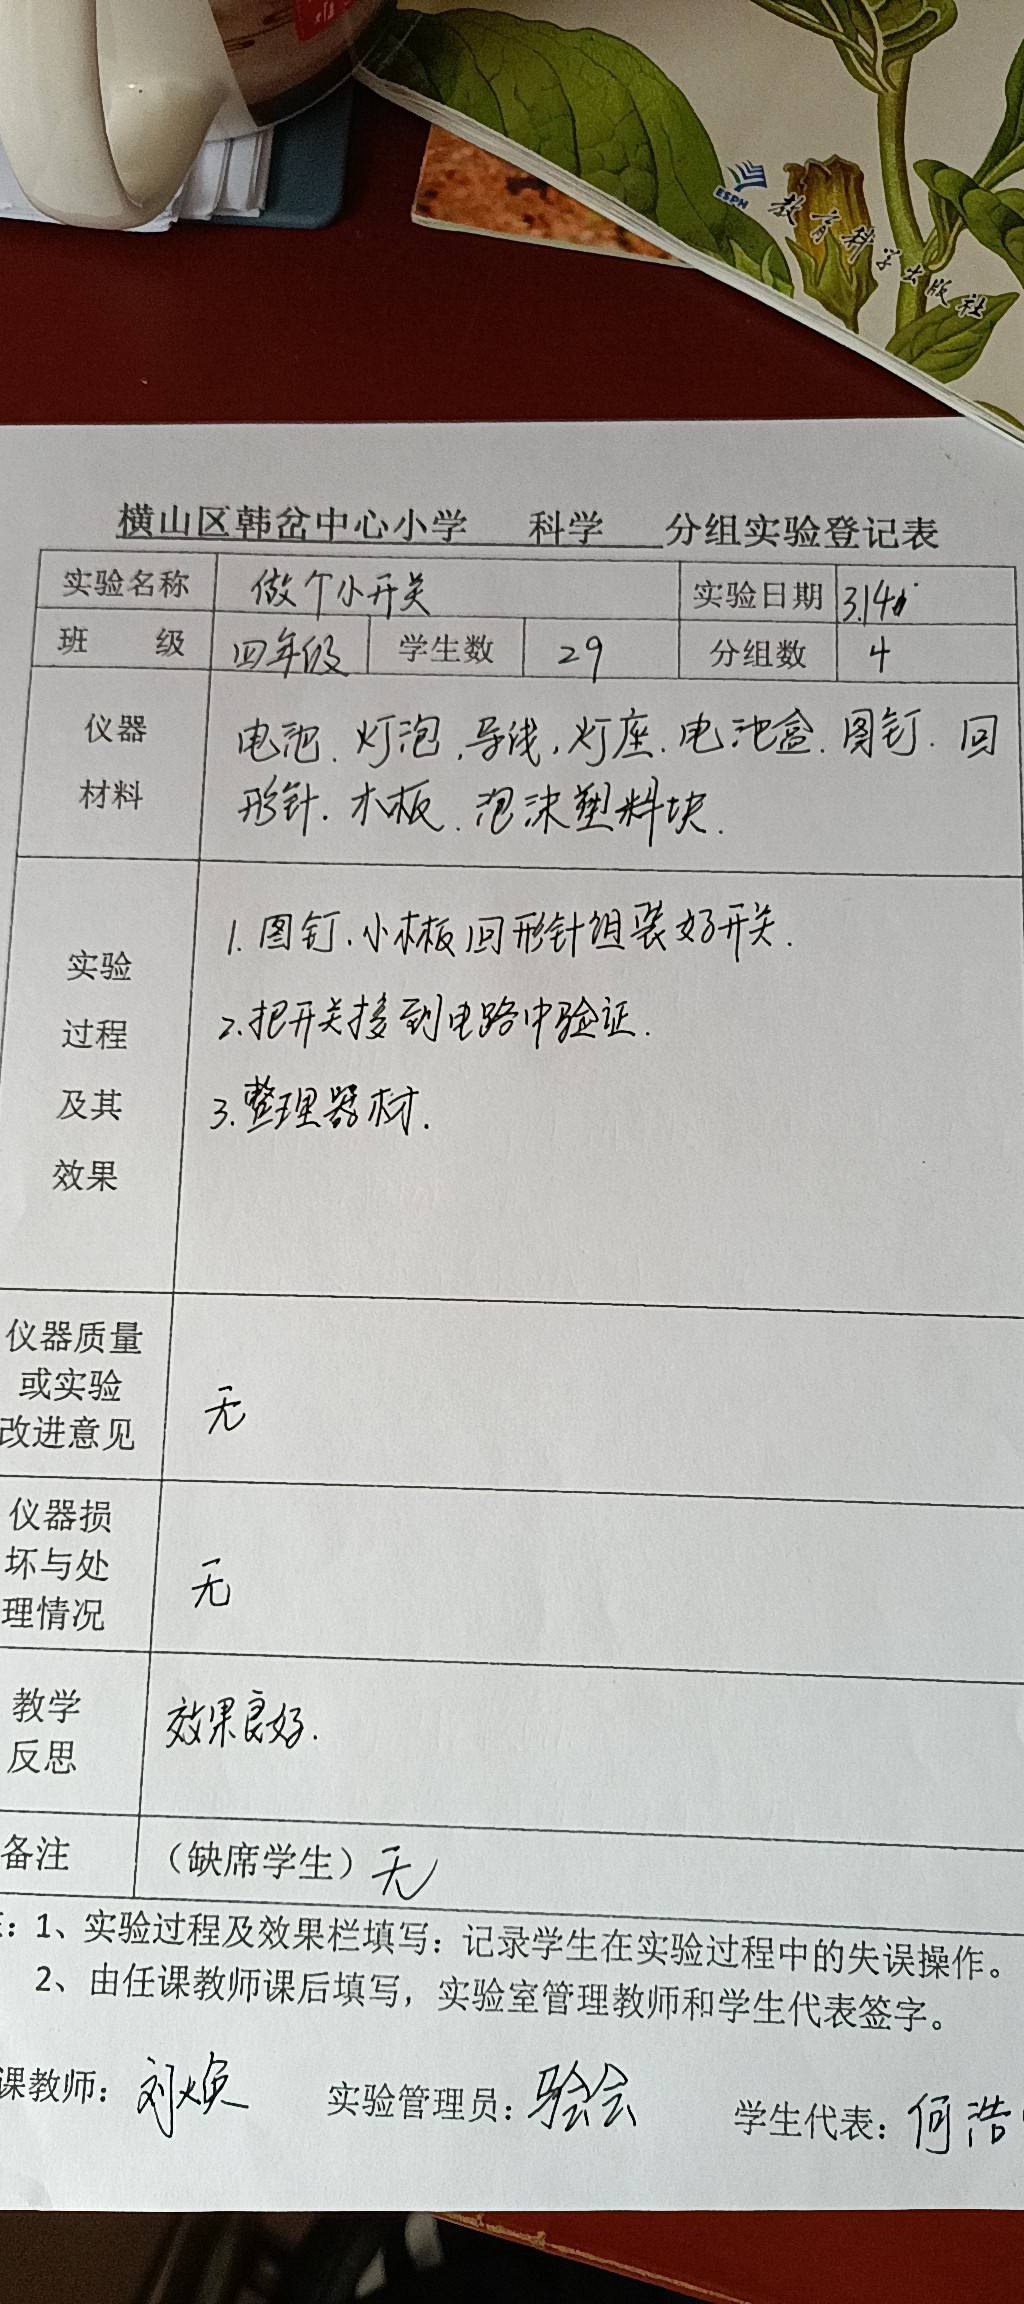 ESPH
教育科学出版社
横山区韩岔中心小学 科学 分组实验登记表
实验名称 做个小开关 实验日期 3.14
班 级 四年级 学生数 29 分组数 4
仪器
材料
电池、灯泡、导线、灯座、电池盒、图钉、回
形针、木板、泡沫塑料块.
实验
过程
及其
效果
1. 图钉、小木板回形针组装好开关.
2. 把开关接到电路中验证.
3. 整理器材.
仪器质量
或实验
改进意见
无
仪器损
坏与处
理情况
无
教学
反思
效果良好.
备注 (缺席学生) 无
：1、实验过程及效果栏填写：记录学生在实验过程中的失误操作。
2、由任课教师课后填写，实验室管理教师和学生代表签字。
课教师：刘焕 实验管理员： 学生代表：何浩